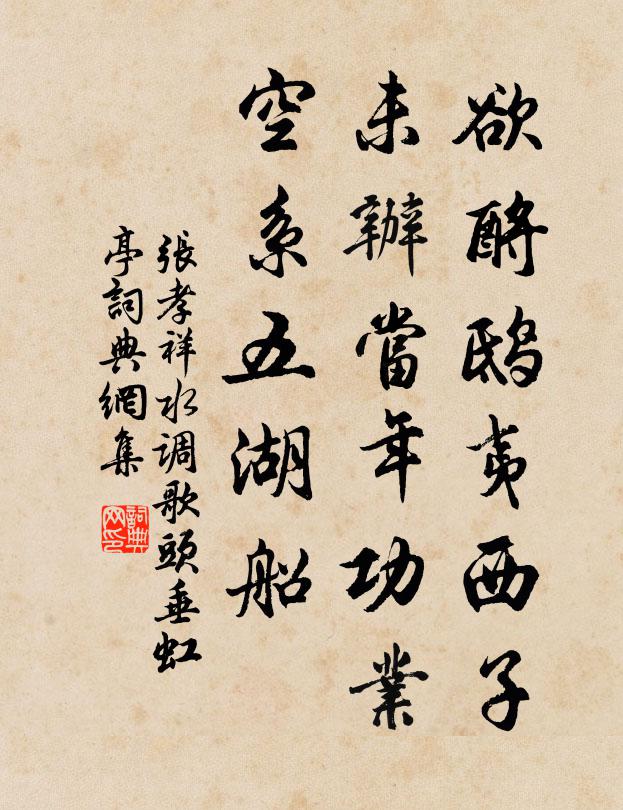 欲酹鴟夷西子
未辦當年功業
空系五湖船
張孝祥水调歌頭垂虹
亭詞典網集
詞典
网印